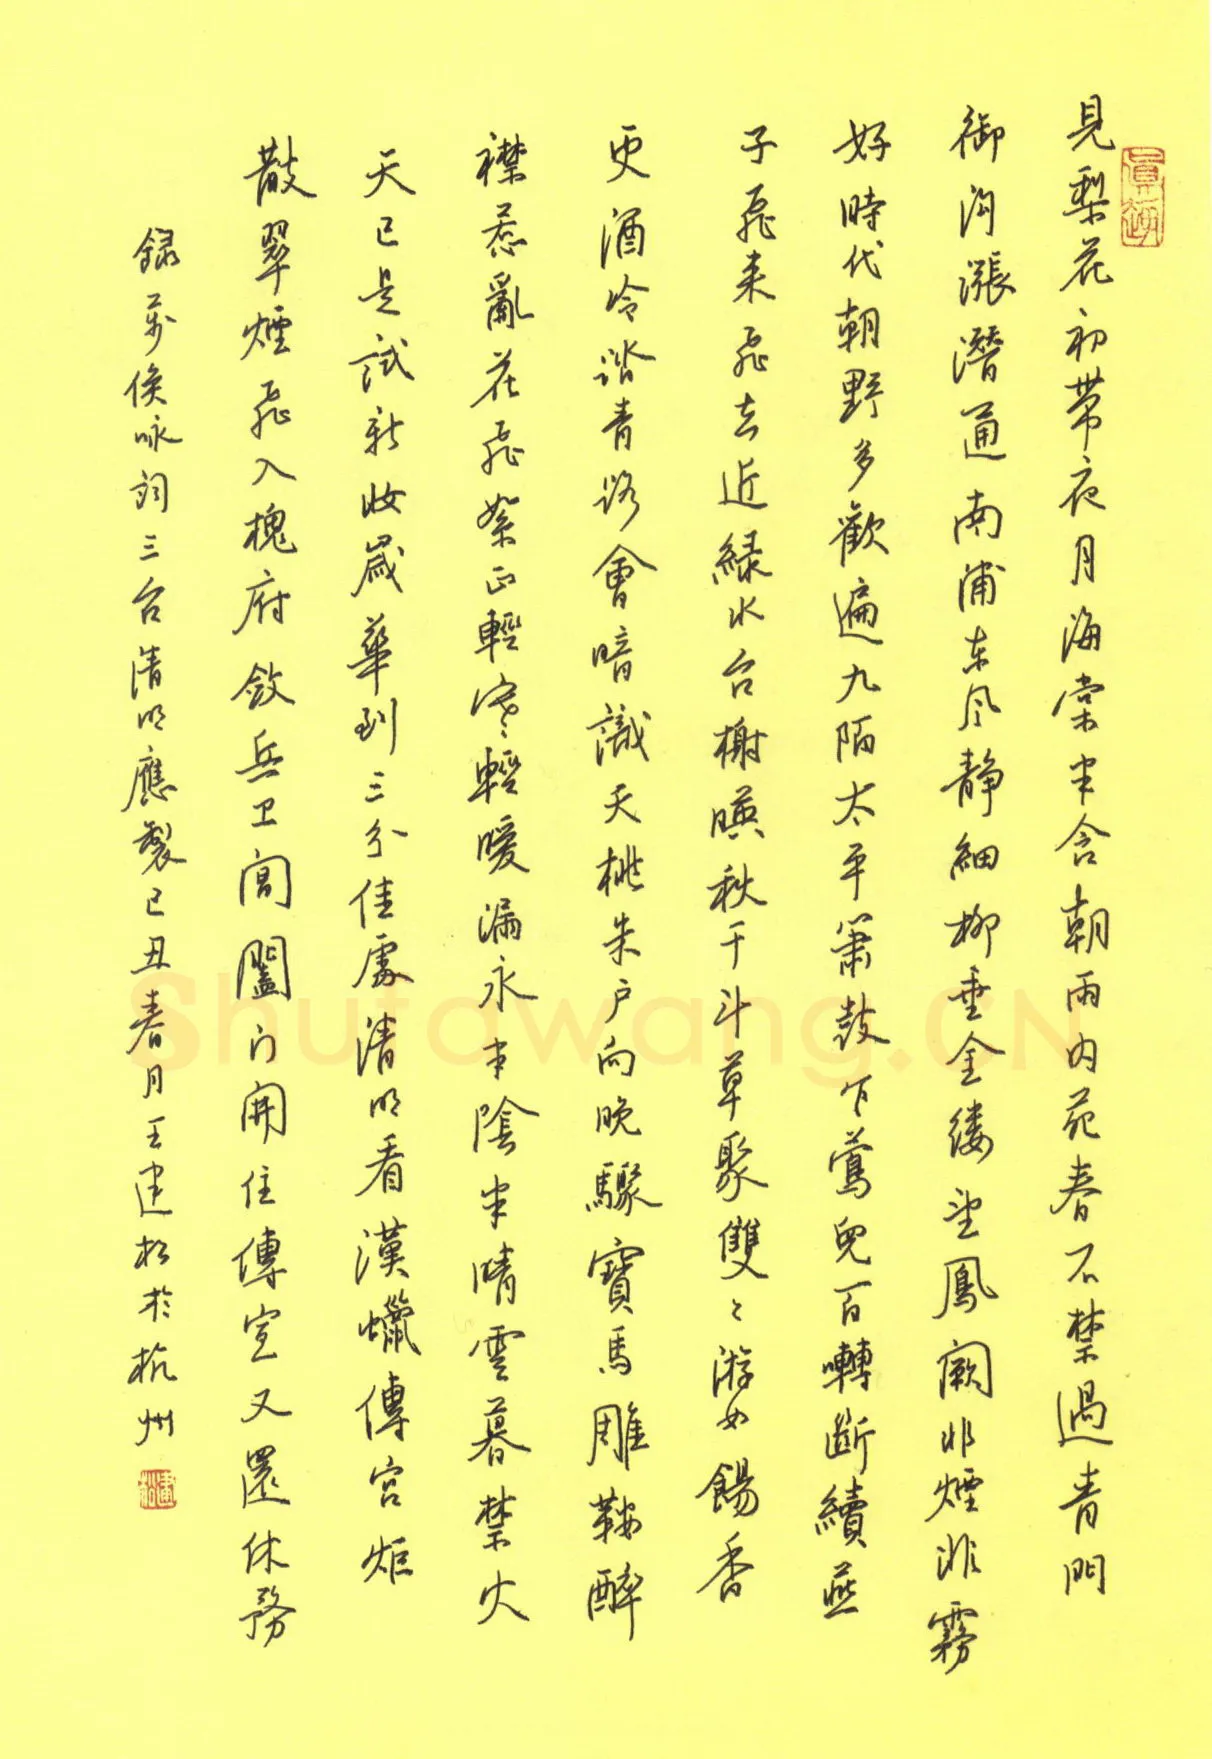 見梨花初帶夜月海棠半含朝雨内苑春不禁過青門
御沟漲潛通南浦东风静細柳垂金缕望鳳阙非煙非霧
好時代朝野多歡遍九陌太平簫鼓乍鶯兒百囀斷續燕
子飛来飛去近緑水台榭暎秋千斗草聚雙〻游女餳香
更酒冷踏青路會暗識夭桃朱户向晚驟寶馬雕鞍醉
襟惹亂花飛絮正輕寒輕暖漏永半陰半晴雲暮禁火
天已是試新妝歲華到三分佳處清明看漢蠟傳宮炬
散翠煙飛入槐府斂兵卫閶闔门開住傳宣又還休務
録萬俟咏詞三台清明應製己丑春月王建松於杭州
Shufawang.CN